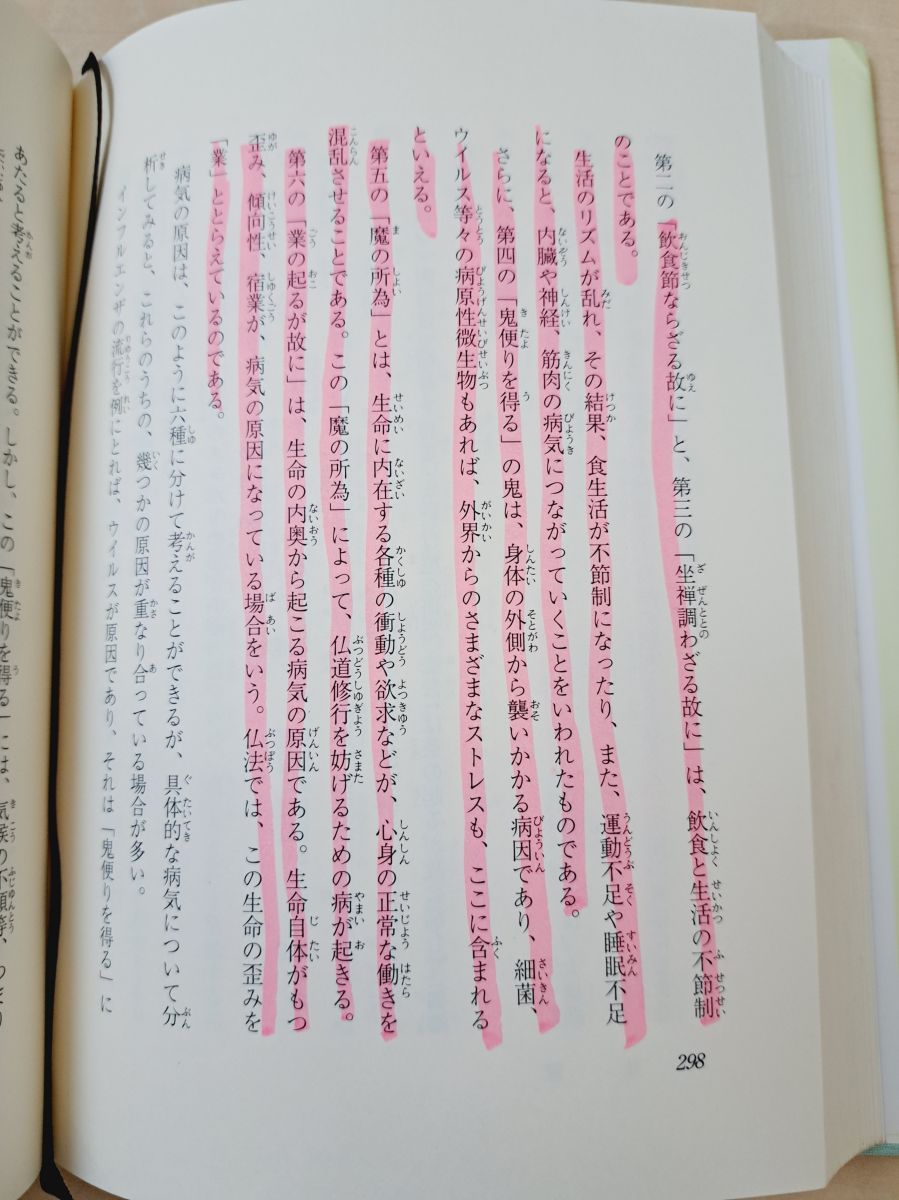 第二の「飲食節ならざる故に」と、第三の「坐禅調わざる故に」は、飲食と生活の不節制
のことである。
生活のリズムが乱れ、その結果、食生活が不節制になったり、また、運動不足や睡眠不足
になると、内臓や神経、筋肉の病気につながっていくことをいわれたものである。
さらに、第四の「鬼便りを得る」の鬼は、身体の外側から襲いかかる病因であり、細菌、
ウイルス等々の病原性微生物もあれば、外界からのさまざまなストレスも、ここに含まれる
といえる。
第五の「魔の所為」とは、生命に内在する各種の衝動や欲求などが、心身の正常な働きを
混乱させることである。この「魔の所為」によって、仏道修行を妨げるための病が起きる。
第六の「業の起るが故に」は、生命の内奥から起こる病気の原因である。生命自体がもつ
歪み、傾向性、宿業が、病気の原因になっている場合をいう。仏法では、この生命の歪みを
「業」ととらえているのである。
病気の原因は、このように六種に分けて考えることができるが、具体的な病気について分
析してみると、これらのうちの、幾つかの原因が重なり合っている場合が多い。
インフルエンザの流行を例にとれば、ウイルスが原因であり、それは「鬼便りを得る」に
298
あたると考えることができる。しかし、この「鬼便りを得る」には、気候の不順等、